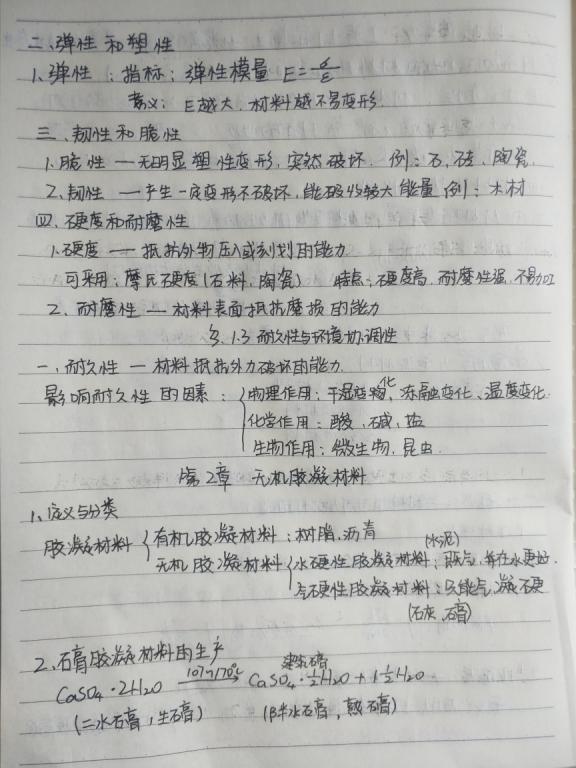 二、弹性和塑性
1、弹性：指标：弹性模量 E=σ/ε
意义：E越大，材料越不易变形.
三、韧性和脆性
1、脆性 — 无明显塑性变形，突然破坏. 例：石、砖、陶瓷.
2、韧性 — 产生一定变形不破坏，能吸收较大能量 例：木材
四、硬度和耐磨性
1、硬度 — 抵抗外物压入或刻划的能力
可采用：摩氏硬度（石料，陶瓷） 特点：硬度高，耐磨性强，不易加工
2、耐磨性 — 材料表面抵抗磨损的能力
§1.3 耐久性与环境协调性
一、耐久性 — 材料抵抗外力破坏的能力.
影响耐久性的因素：物理作用：干湿变化，冻融变化、温度变化.
化学作用：酸、碱、盐
生物作用：微生物，昆虫.
第2章 无机胶凝材料
1、定义与分类
胶凝材料 有机胶凝材料：树脂，沥青 (水泥)
无机胶凝材料 水硬性胶凝材料：既气，并在水更好.
气硬性胶凝材料：只能气，凝硬
(石灰、石膏)
2、石膏胶凝材料的生产 建筑石膏
CaSO₄·2H₂O 107~170℃ CaSO₄·½H₂O + 1½H₂O
(二水石膏，生石膏) (β半水石膏，熟石膏)